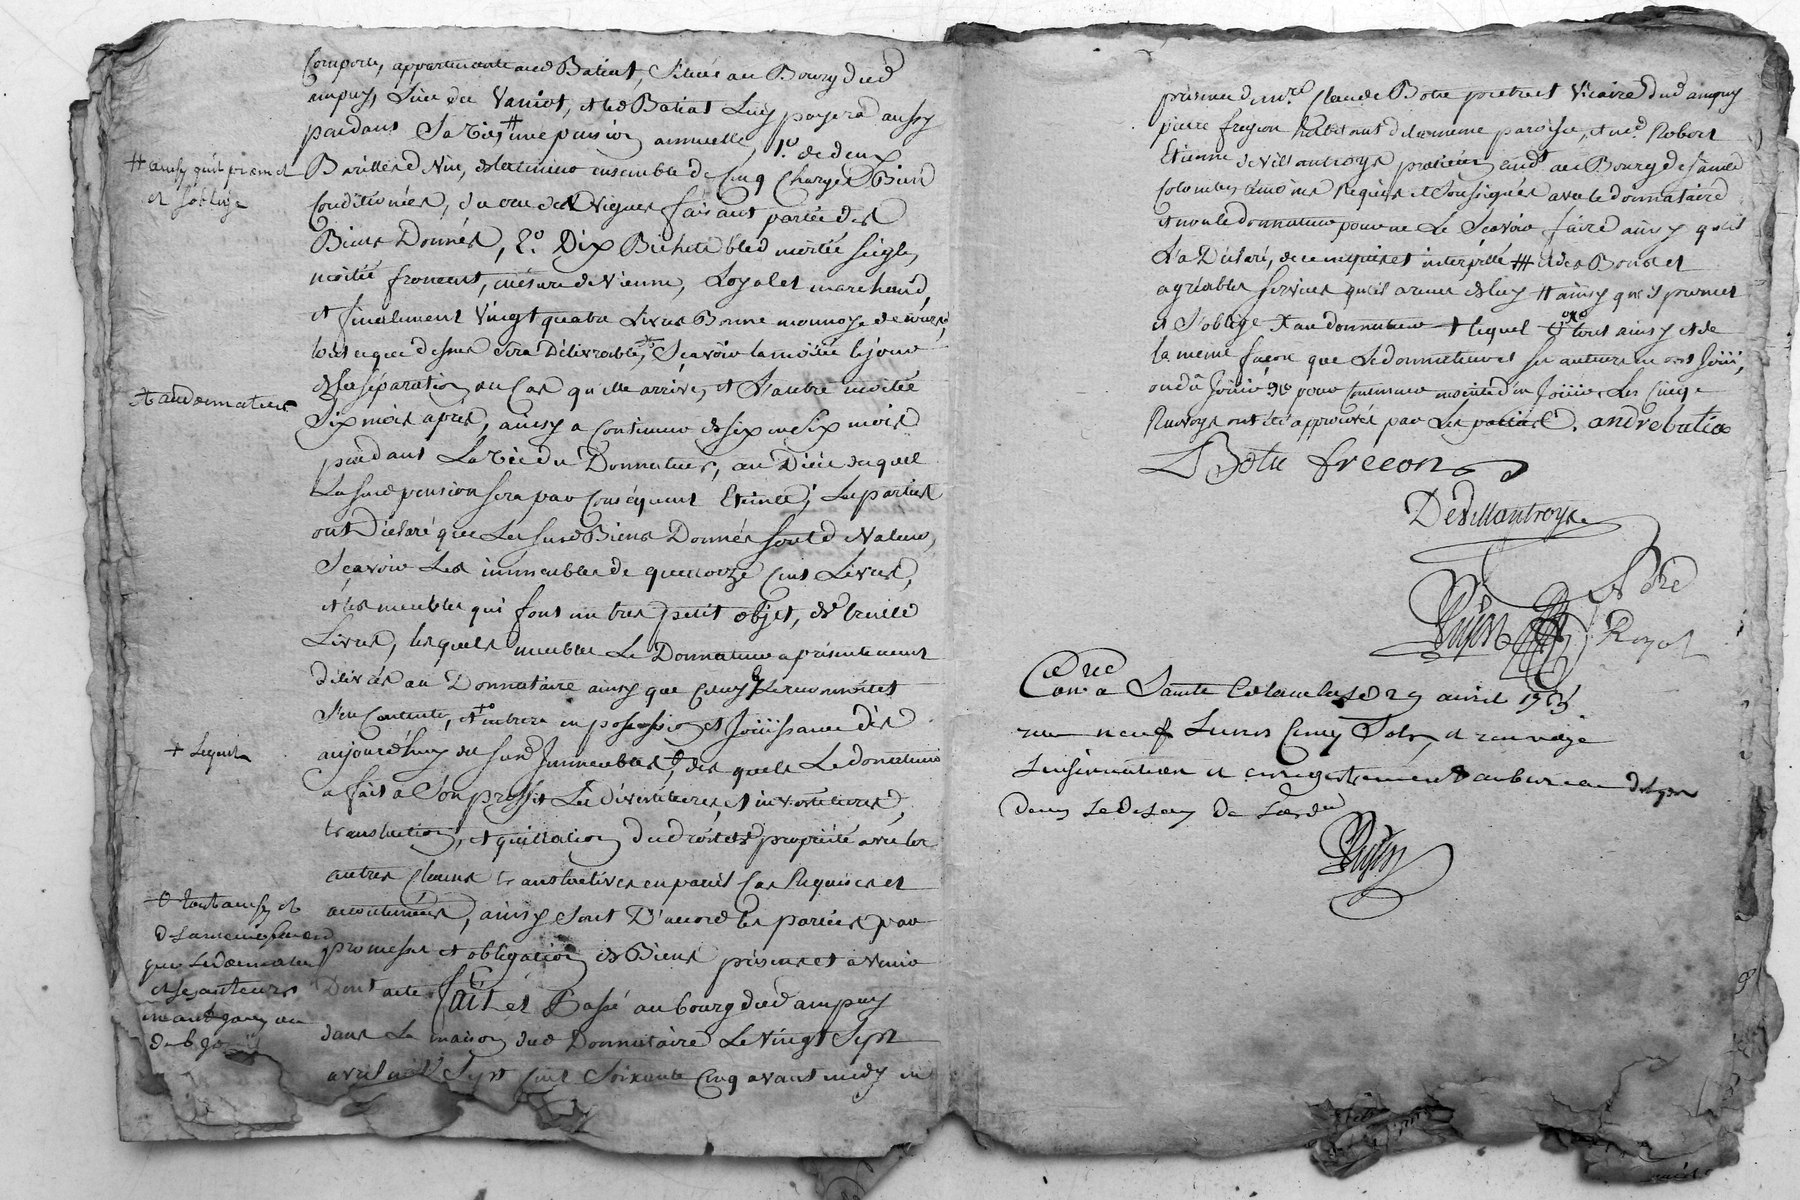 Comporte, appartenante aud Batiat, Située au Bourg dud
ampuy, Lieu du Vaniot, et led Batiat Luy payera aussy
pendant Sa vie, # une pension annuelle, 1.º de deux
Barilles de Vin, estimé ensemble de Cinq Charges Bien
Conditionnées, du cru des Vignes faisant partie des
Biens Donnés, 2.º Dix Bichets bled moitié seigle,
moitié froment, mésure de Vienne, Loyal et marchand,
et finalement Vingt quatre Livres Bonne monnoye de cours,
Sera Délivrable, Scavoir la moitié le jour
de la séparation, au Cas qu'elle arrive, et L'autre moitié
Six mois après, ainsy a Continuer de six en Six mois
pendant La vie du Donnateur, au Décès duquel
La susd pension sera par Conséquent Eteinte; Les parties
ont Déclaré que Les susd Biens Donnés sont de Valeur,
Scavoir Les immeubles de quatorze Cent Livres,
et les meubles qui font un tres petit objet, de trente
Livres, lesquels meubles Le Donnateur a présentement
délivrés au Donnataire ainsy que Celuy cy Le reconnoit et
S'en Contente, et entrera en possession et Joüissance dès
aujourd'huy des susd Immeubles, desquels Le donnateur
a fait a Son profit Les dévestitures, et investitures,
translation, et quittation du droit de propriété avec les
autres Clauses translatives en pareil Cas Requises et
accoutumées, ainsy Sont D'accord les parties par
promesse et obligation de Biens présens et a venir
Dont acte fait et Passé au bourg dud ampuy
dans La maison dud Donnataire Le Vingt Sept
avril mil Sept Cent Soixante Cinq avant midy en
# ainsy qu'il promet
et s'oblige
X au donnateur
+ Lequel
tout ainsy et
de la meme façon
que Le donnateur
et ses auteurs
en ont Jouy ou
dub Jo
présence de m.re Claude Botu pretre et Vicaire dud ampuy
pierre freyson habitant de la meme paroisse, et me. Robert
Etienne de Villantroys praticien aud au Bourg de Sainte
Colombe, témoins Requis et Soussignés avec le donnataire
et non le donnateur pour ne Le Scavoir faire ainsy qu'il
L'a Déclaré, de ce enquis et interpellé # et des Bons et
agréables services qu'il a reçus de luy # ainsy qu'il promet
et s'oblige X au donnateur + lequel tout ainsy et de
la meme façon que Le donnateur et ses auteurs en ont Joüi,
ou dû Joüir
Renvoys ont été approuvés par Les parties. andre batia
Botu freeon
DeVillantroys
Royol
Con.lé a Sainte Colombe le 29 avril 1765
reçu neuf Livres Cinq Sols, et renvoyé
Linsinuation et enregistrement au bureau de Lyon
dans le delay de Lord.ce